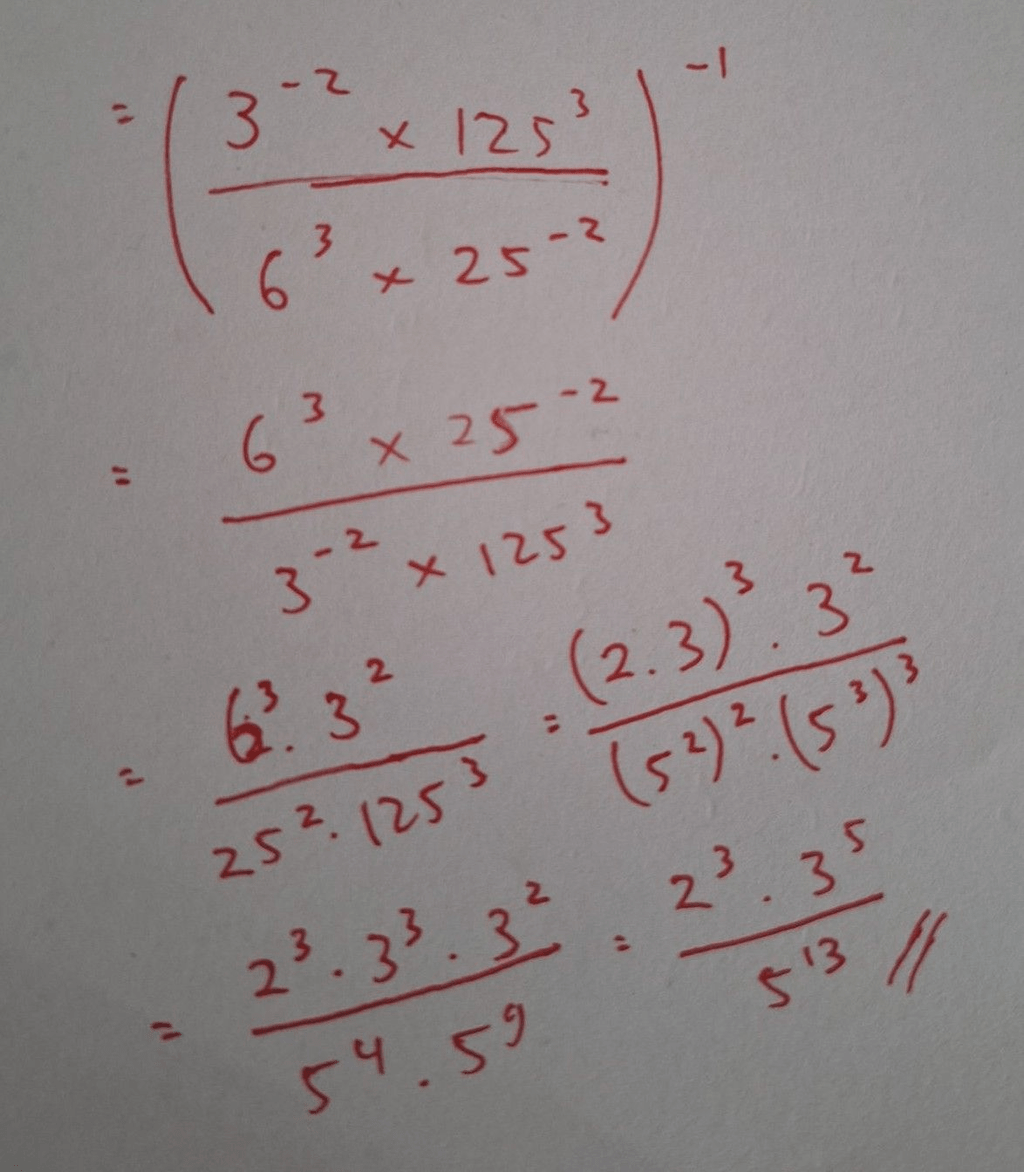 = (3⁻² × 125³ / 6³ × 25⁻²)⁻¹
= 6³ × 25⁻² / 3⁻² × 125³
= 6³ . 3² / 25² . 125³ = (2 . 3)³ . 3² / (5²)² . (5³)³
= 2³ . 3³ . 3² / 5⁴ . 5⁹ = 2³ . 3⁵ / 5¹³ //